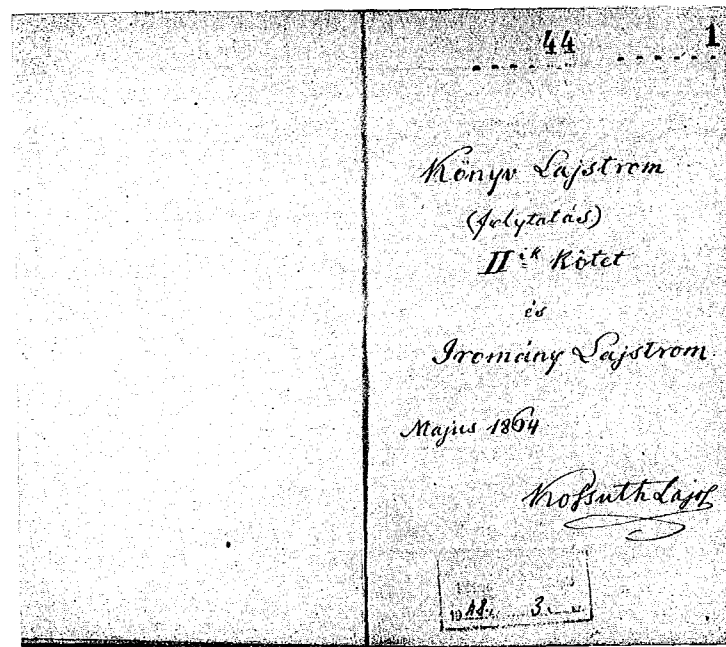 44 1
Könyv Lajstrom
(folytatás)
II ik Kötet
és
Iromány Lajstrom
Majus 1864
Kossuth Lajos
1948 3